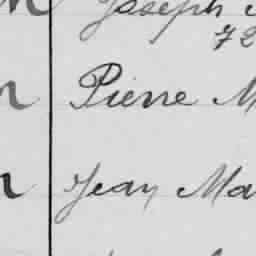 Joseph
72
Pierre M
Jean Ma